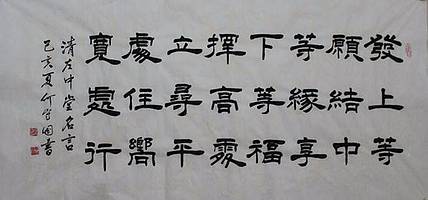 發上等
願結中
等緣享
下等福
擇高處
立尋平
處住嚮
寬處行
清左中堂名言
己亥夏書